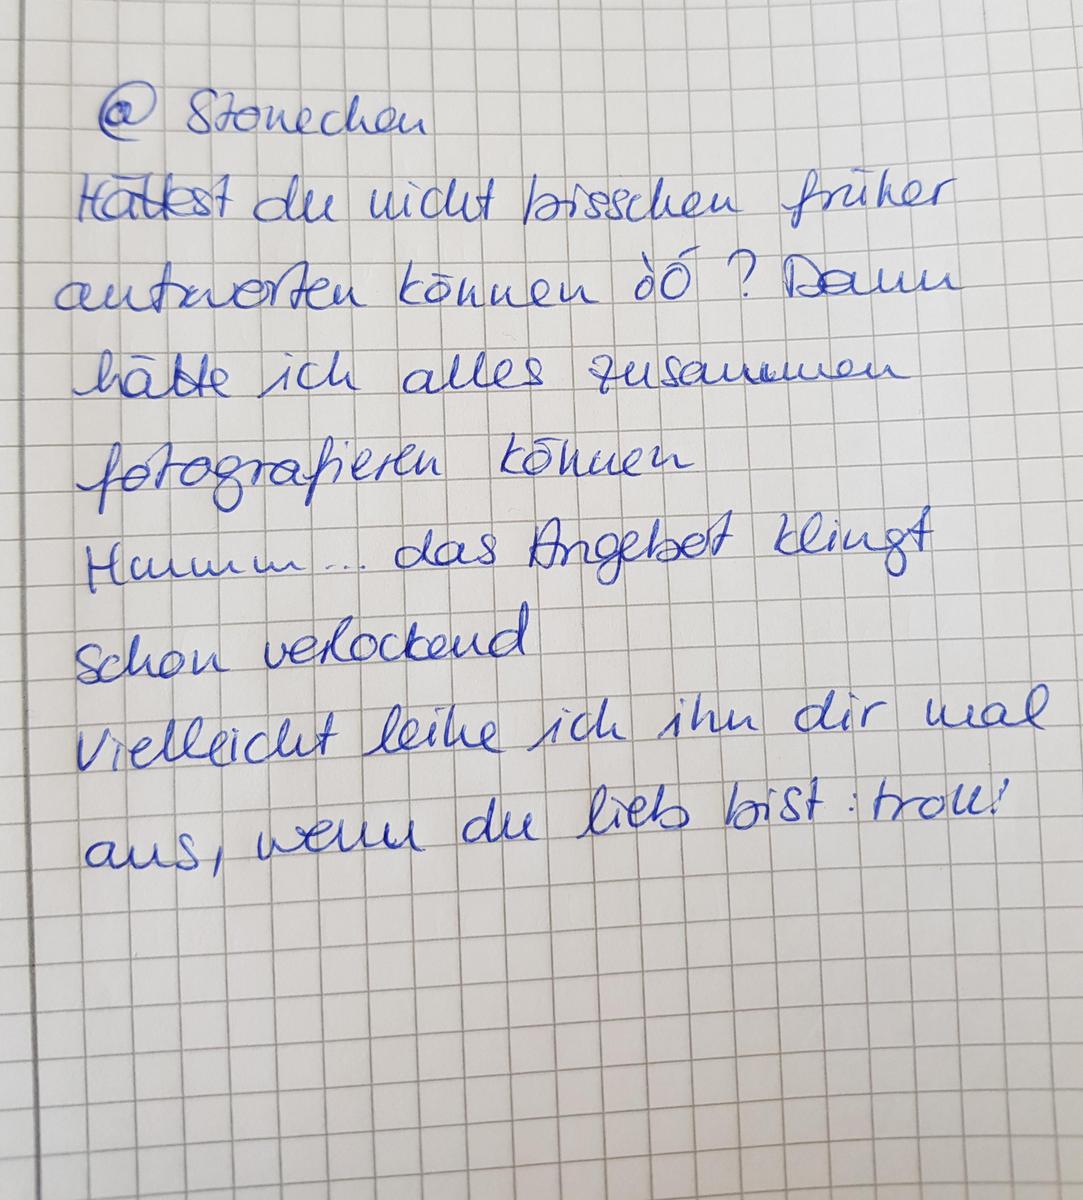 @ Stonechen
Hättest du nicht bisschen früher
antworten können òó ? Dann
hätte ich alles zusammen
fotografieren können
Hmmm... das Angebot klingt
schon verlockend
vielleicht leihe ich ihn dir mal
aus, wenn du lieb bist :troll: